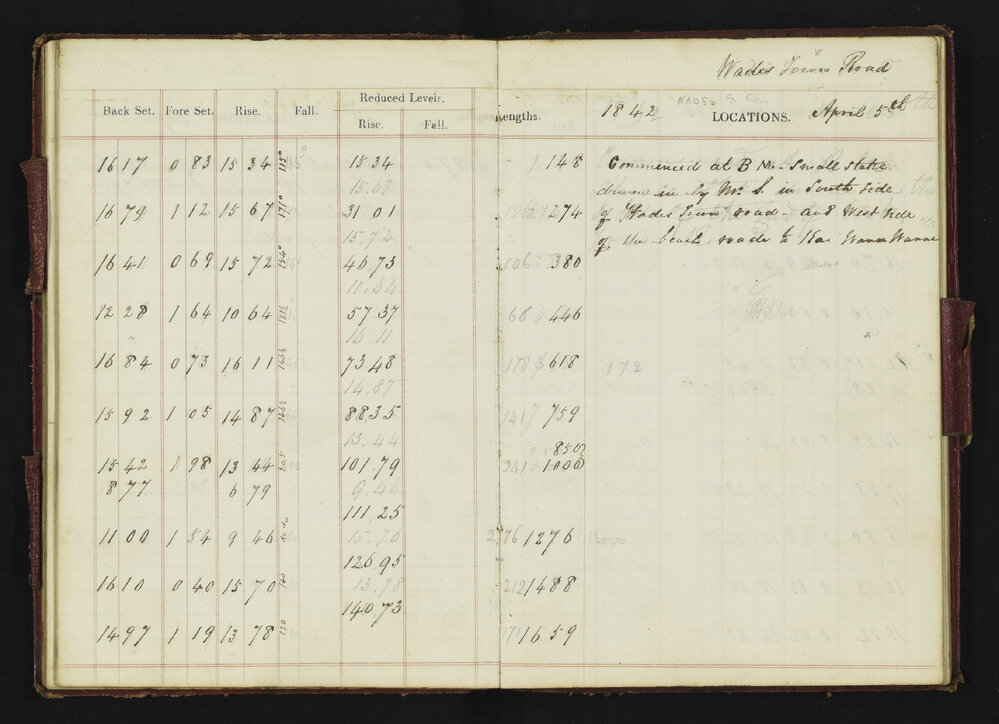 Wades Town Road
Reduced Levels.
Back Set. Fore Set. Rise. Fall. Rise. Fall. Lengths. 1842 LOCATIONS. April 5th
16 17 0 83 15 34 15 34 1 148 Commenced at B M. Small stake
15.67 driven in by Mr S. in South side
16 79 1 12 15 67 31 01 274 of Wades Town road - and West side
15.72 of the beach road to Kai Warra Warra
16 41 0 69 15 72 46 73 380
10.64
12 28 1 64 10 64 57 37 68 446
16 11
16 84 0 73 16 11 73 48 178 618 172
14.87
15 92 1 05 14 87 88.35 141 759
13.44
850
15 42 1 98 13 44 205 101.79 241 1000
8 77 6 79 9.46
111.25
11 00 1 54 9 46 15.70 276 1276
126.95
16 10 0 40 15 70 160 13.78 212 1488
140.73
14 97 1 19 13 78 120 171 1659